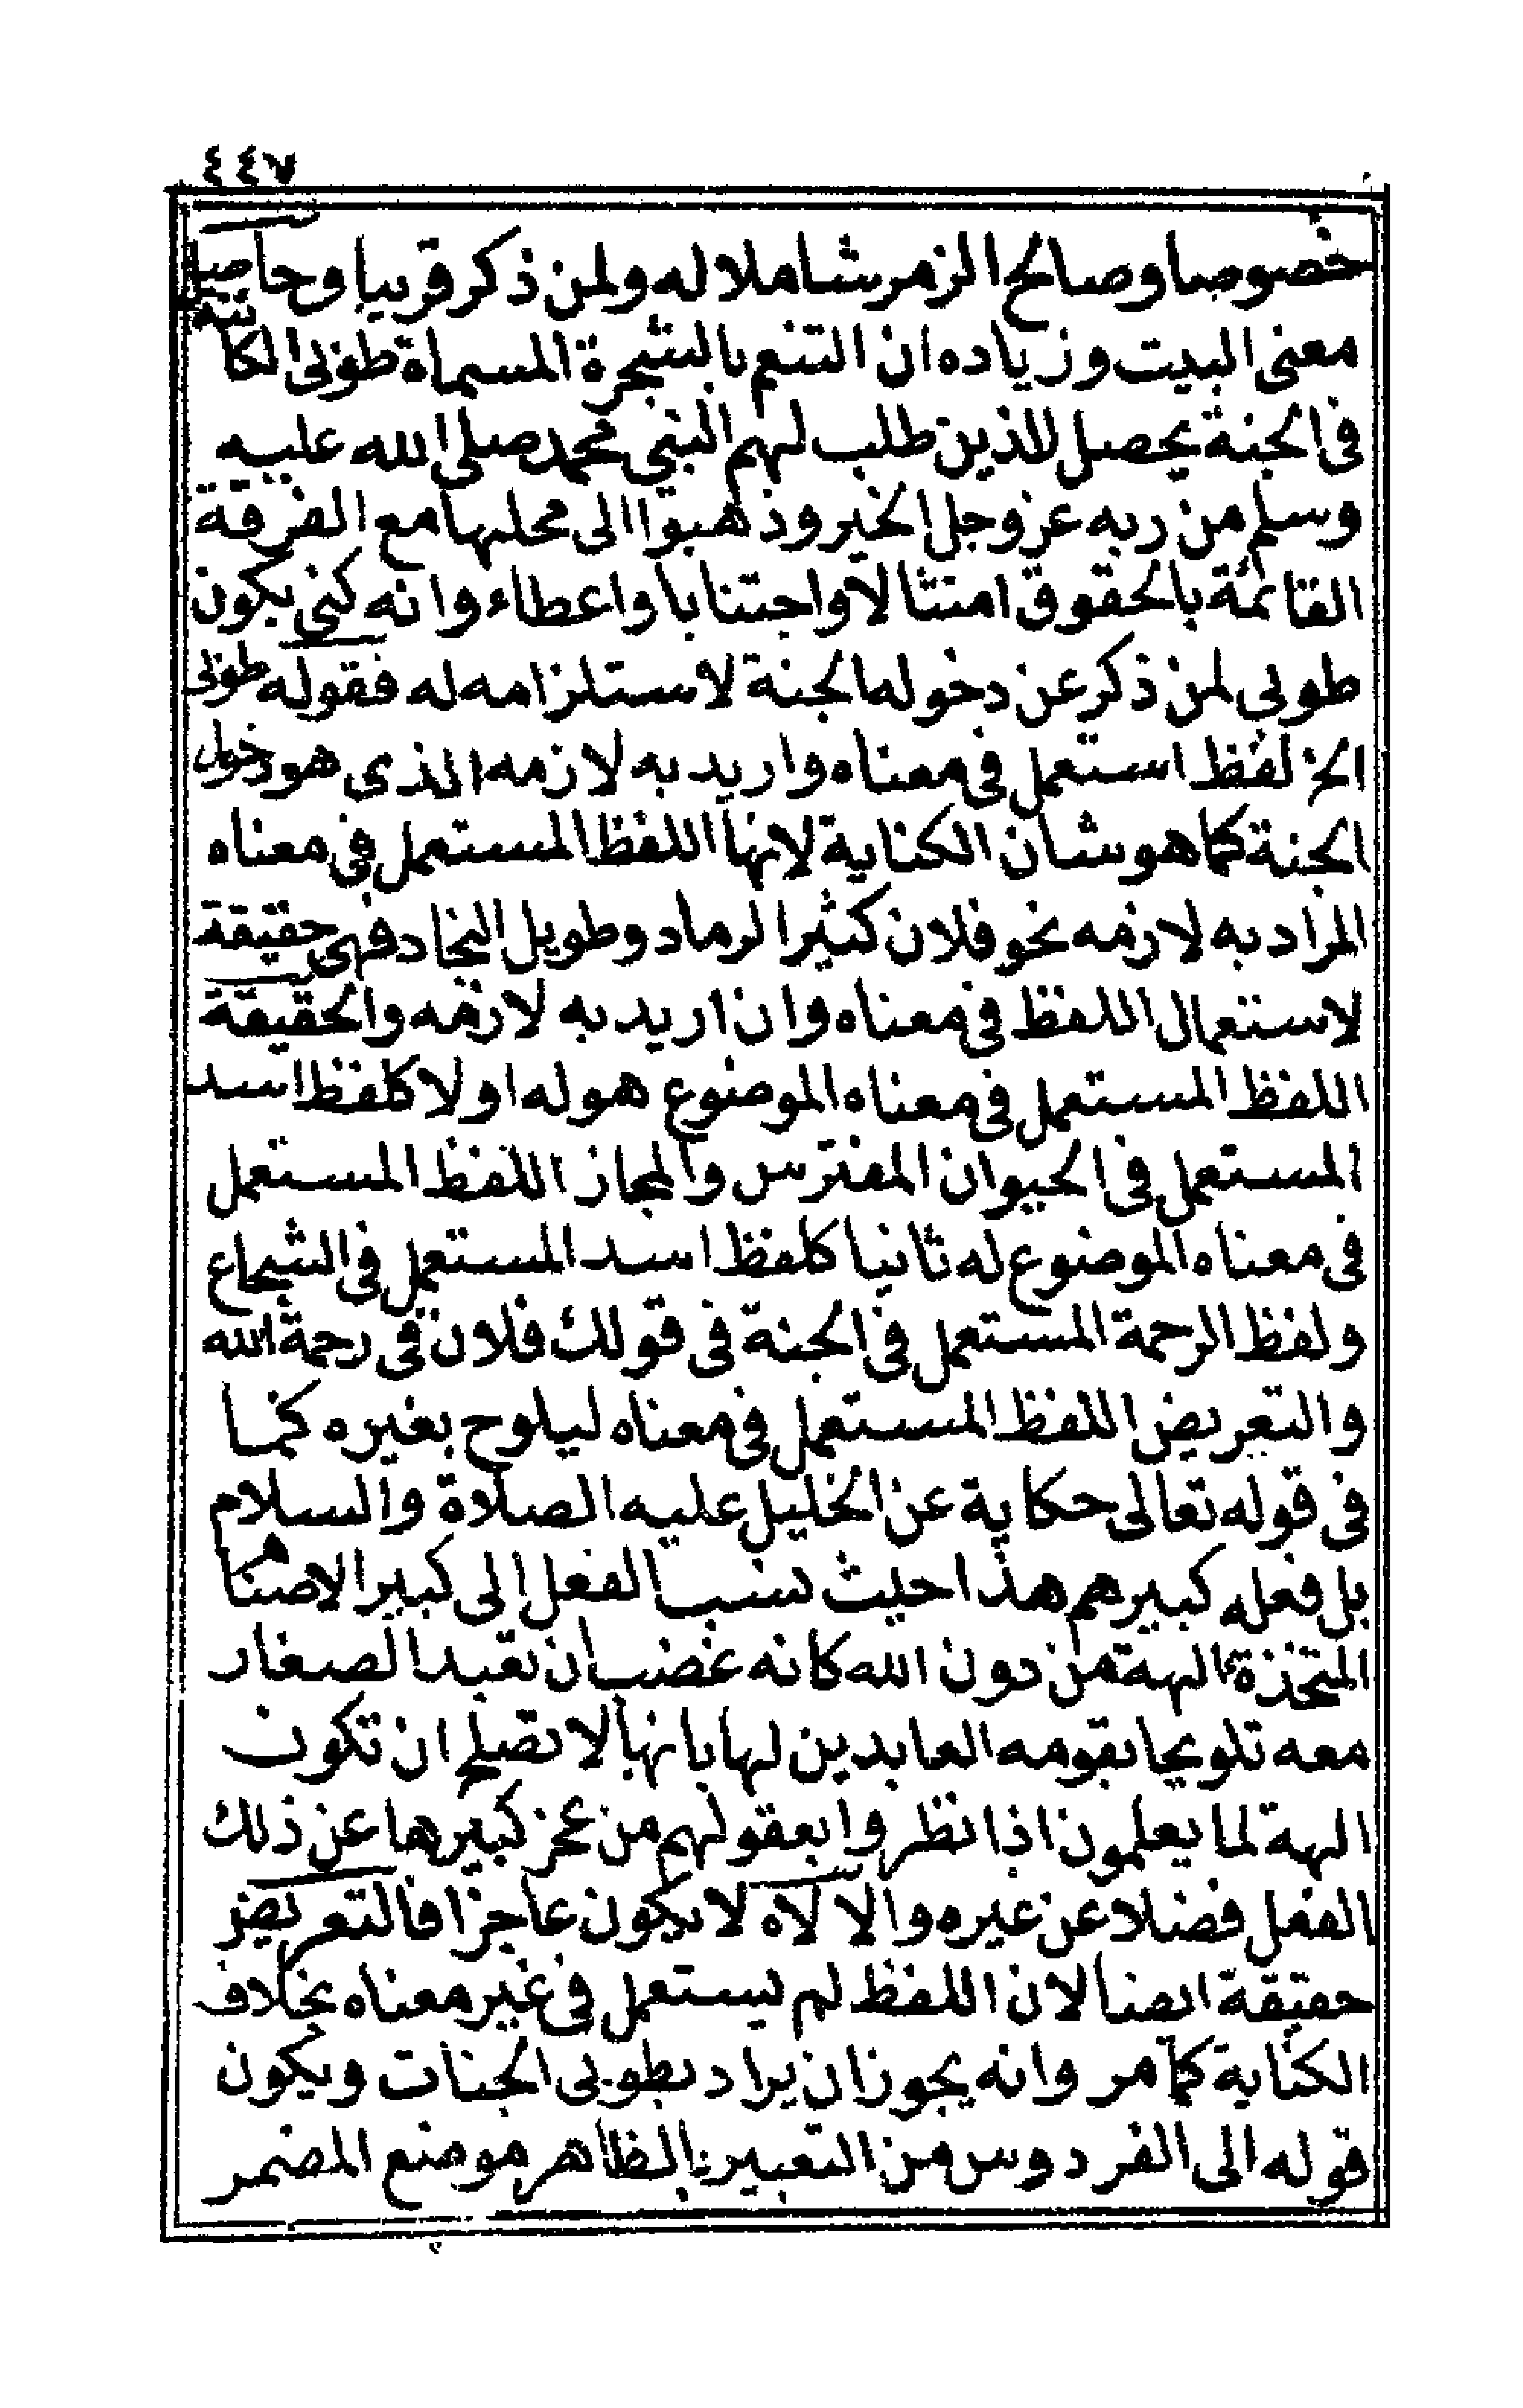 ٤٤٧
خصوصا وصالح الزمر شاملا له ولمن ذكر قريبا وحاصل
معنى البيت وزياده ان التنعم بالشجرة المسماة طوبى الكائنة
فى الجنة يحصل للذين طلب لهم النبى محمد صلى الله عليه
وسلم من ربه عز وجل الخير وذهبوا الى محلها مع الفرقة
القائمة بالحقوق امتثالا واجتنابا واعطاء وانه كنى بكون
طوبى لمن ذكر عن دخوله الجنة لاستلزامه له فقوله طوبى
الخ لفظ استعمل فى معناه واريد به لازمه الذى هو دخول
الجنة كما هو شان الكناية لانها اللفظ المستعمل فى معناه
المراد به لازمه نحو فلان كثير الرماد وطويل النجاد فهى حقيقة
لاستعمال اللفظ فى معناه وان اريد به لازمه والحقيقة
اللفظ المستعمل فى معناه الموضوع هو له اولا كلفظ اسد
المستعمل فى الحيوان المفترس والمجاز اللفظ المستعمل
فى معناه الموضوع له ثانيا كلفظ اسد المستعمل فى الشجاع
ولفظ الرحمة المستعمل فى الجنة فى قولك فلان فى رحمة الله
والتعريض اللفظ المستعمل فى معناه ليلوح بغيره كما
فى قوله تعالى حكاية عن الخليل عليه الصلاة والسلام
بل فعله كبيرهم هذا حيث نسب الفعل الى كبير الاصنام
المتخذة الهة من دون الله كانه غضب ان تعبد الصغار
معه تلويحا بقومه العابدين لها بانها لا تصلح ان تكون
الهة لما يعلمون اذا نظروا بعقولهم من عجز كبيرها عن ذلك
الفعل فضلا عن غيره والا لاه لا يكون عاجزا فالتعريض
حقيقة ايضا لان اللفظ لم يستعمل فى غير معناه بخلاف
الكناية كما مر وانه يجوز ان يراد بطوبى الجنات ويكون
قوله الى الفردوس من التعبير بالظاهر موضع المضمر